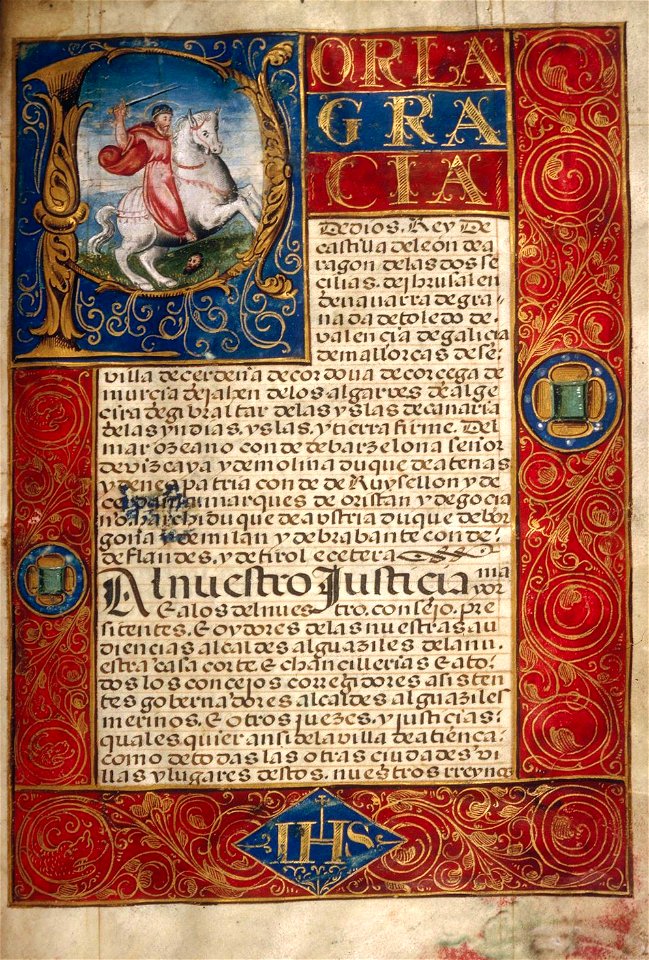 PORLA
GRA
CIA
De dios. Rey De
castilla de león de a
ragon de las dos se
cilias. de jhrusalen
de navarra de gra-
nada de toledo de
valencia de galicia
de mallorcas de se.
villa de cerdeña de cordova de corcega de
murcia de jahen de los algarves de alge
cira de gibraltar de las yslas de canaria
de las yndias. yslas. y tierra firme. Del
mar ozeano conde de barzelona señor
de vizcaya y de molina duque de atenas
y neopatria conde de Ruysellon y de
marques de oristan y de gocia
no archiduque de avstria duque de bor
goña y de milan y de brabante conde.
de flandes. y de tirol e cetera
Al nuestro Justicia ma
yor
& a los del nues tro. consejo. pre
sidentes. & oydores de las nuestras au
diencias alcaldes alguaziles de la nu.
estra casa corte & chancillerias & a to.
dos los concejos corregidores asisten
tes governadores alcaldes alguaziles
merinos. & otros juezes. y justicias.
quales quier ansi de la villa de atienca.
como de todas las otras ciudades vi
llas y lugares destos. nuestros rreynos
IHS